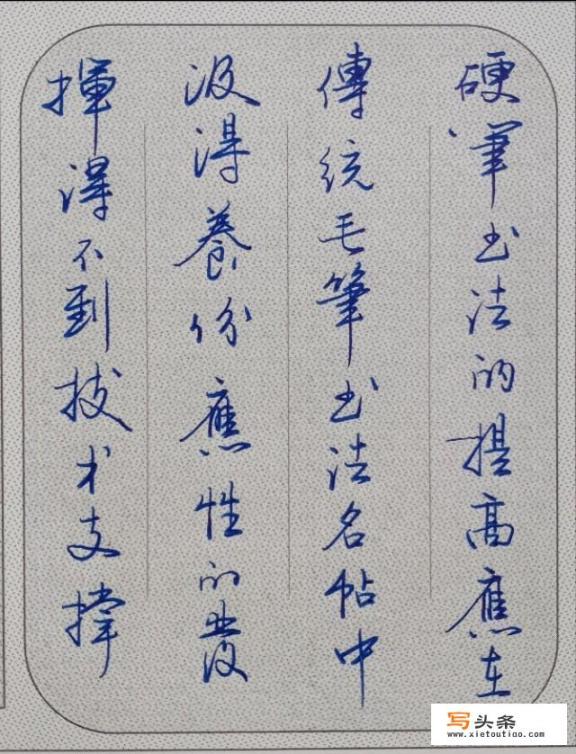 硬筆书法的提高應在
傳统毛筆书法名帖中
汲得養份應性的發
揮得不到技术支撑
写头条
www.xietoutiao.com